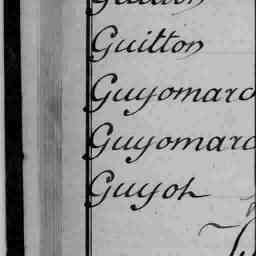 Guitton
Guyomarc
Guyomarc
Guyot